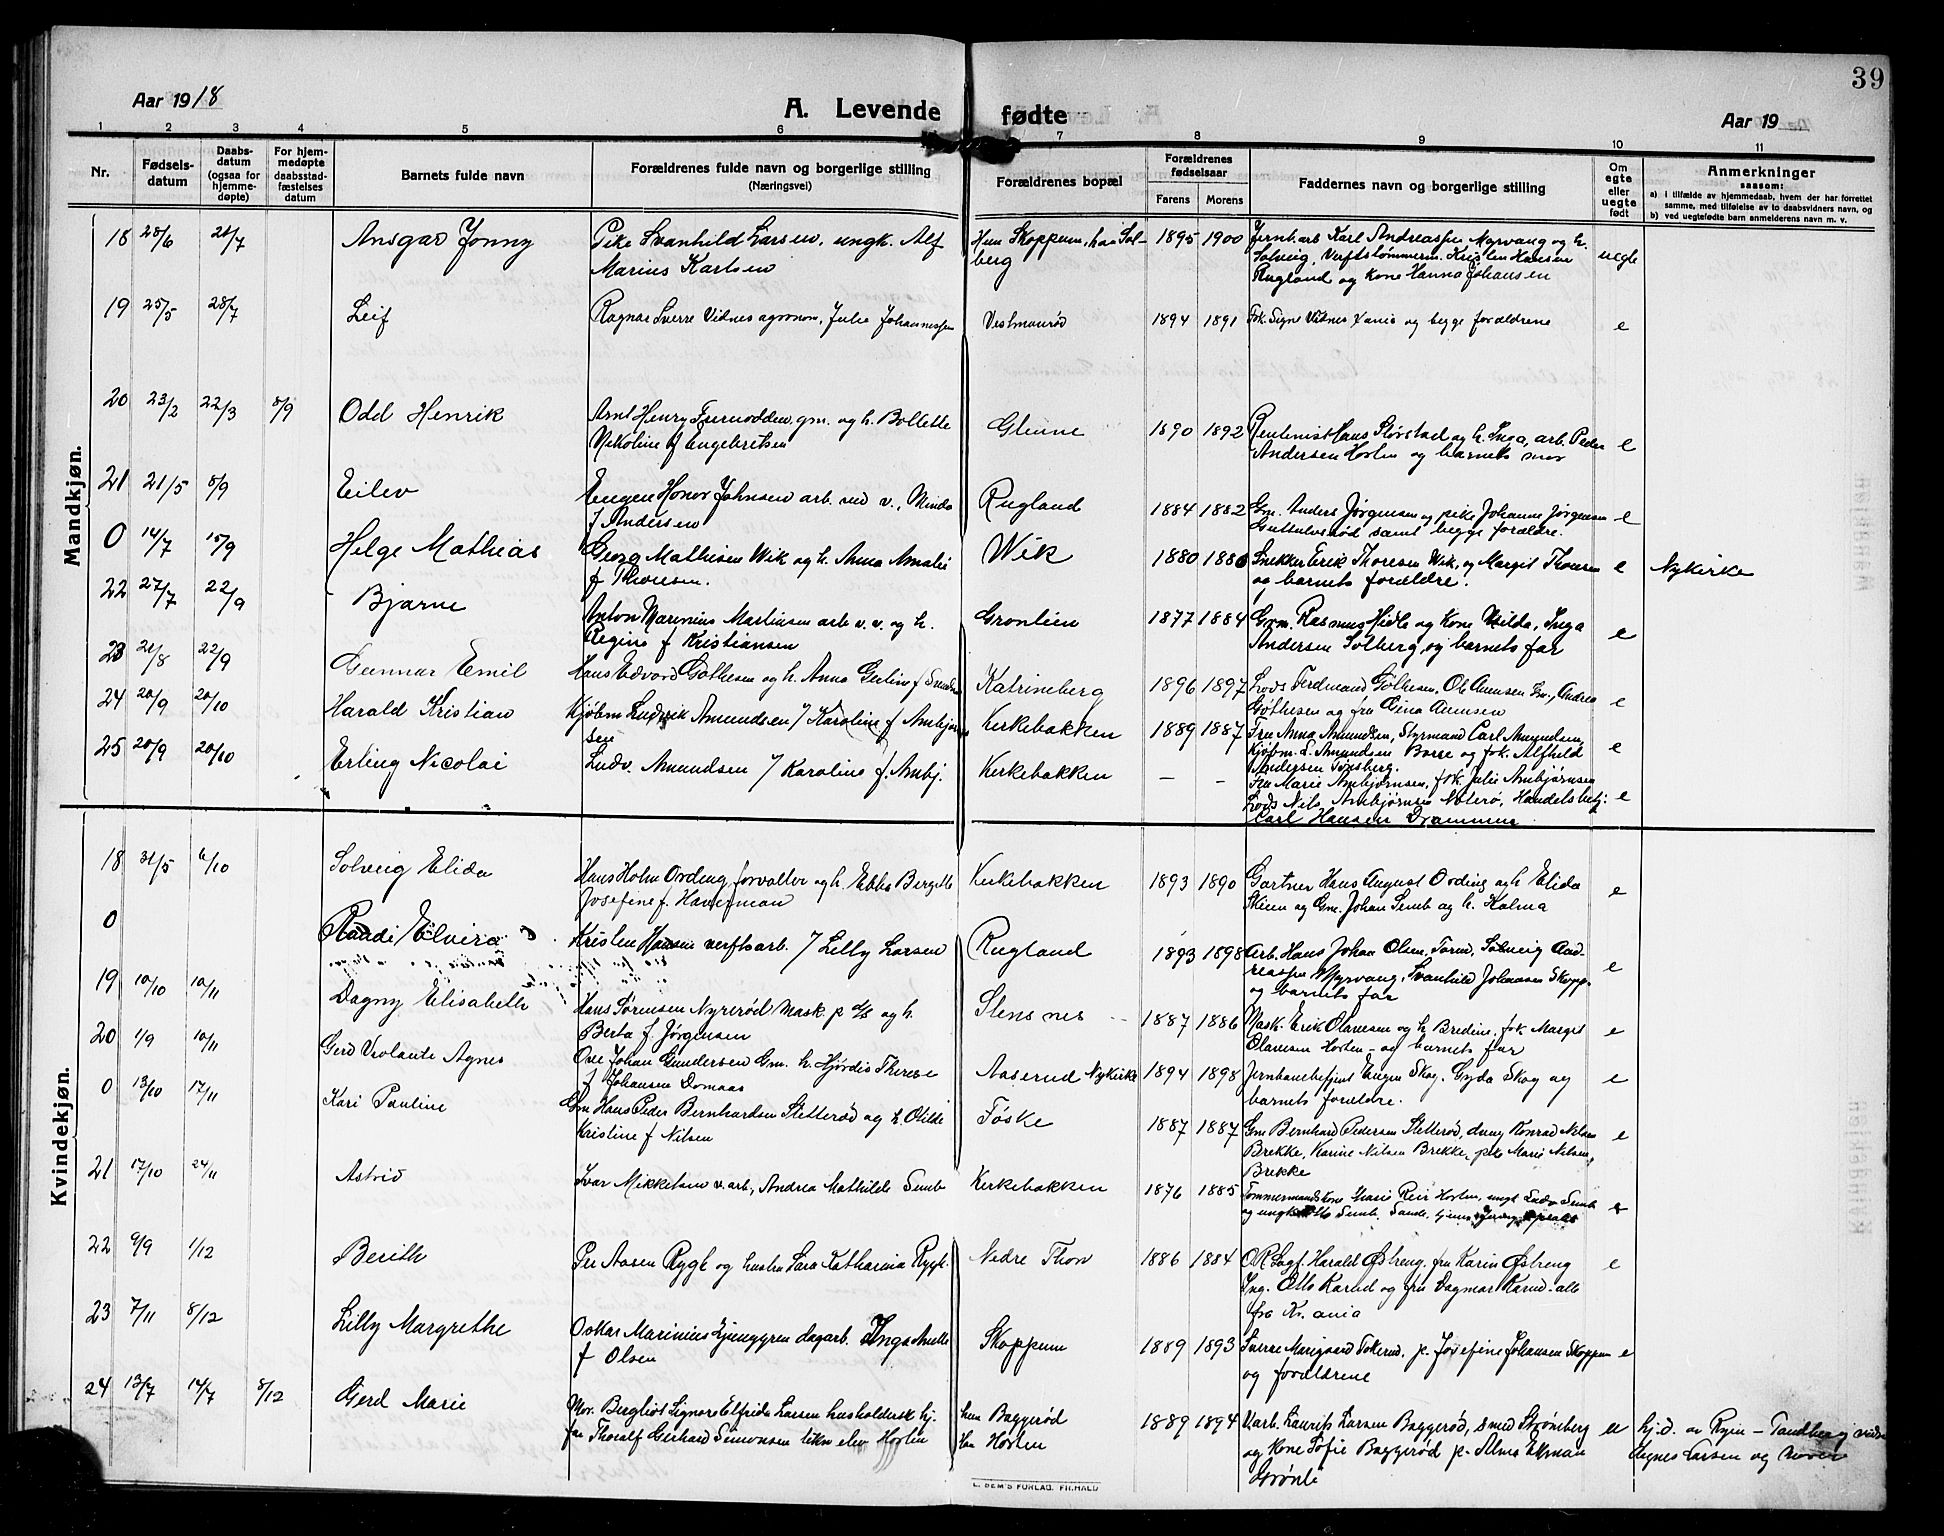 39
Aar 1918
A. Levende fødte
Aar 19
1 2 3 4 5 6 7 8 9 10 11
Nr.
Fødsels-
datum
Daabs-
datum
(ogsaa for
hjemme-
døpte)
For hjem-
medøpte
daabsstad-
fæstelses
datum
Barnets fulde navn
Forældrenes fulde navn og borgerlige stilling
(Næringsvei)
Forældrenes bopæl
Forældrenes
fødselsaar
Farens Morens
Faddernes navn og borgerlige stilling
Om
egte
eller
uegte
født
Anmerkninger
saasom:
a) i tilfælde av hjemmedaab, hvem der har forrettet
samme, med tilføielse av to daabsvidners navn, og
b) ved uegtefødte barn anmelderens navn m. v.
Mandkjøn.
18 25/6 21/7 Ansgar Jonny Pike Svanhild Larsen, ungk. Alf Hun Skoppum, han Sol- 1895 1900 Jernb.arb Karl Andreassen Myrvang og h. uegte
Marius Karlsen berg Solveig, Verftstømmerm. Kristen Hansen
Rugland og kone Hanna Johansen
19 25/5 28/7 Leif Ragnar Sverre Vidnes agronom, Julie Johannessen Vestmanrød 1894 1891 Frk. Signe Vidnes Xania og begge forældrene e
20 23/2 22/3 8/9 Odd Henrik Arnt Henry Furuodden, gm. og h. Bollette Glenne 1890 1892 Rentenist Hans Storstad og h. Inga, arb. Peder e
Nikoline f Engebretsen Andersen Horten og barnets mor
21 21/5 8/9 Eilev Eugen Honor Johnsen arb. ved v., Minda Rugland 1884 1882 Gm. Anders Jørgensen og pike Johanne Jørgensen e
f Andersen samt begge forældre.
0 14/7 15/9 Helge Mathias Georg Mathisen Wik og h. Anna Amalie Wik 1880 1880 Snekker Erik Thoresen Wik, og Margit Thoresen e Nykirke
f Thoresen. og barnets forældre.
22 27/7 22/9 Bjarne Anton Marinius Martinsen arb v. v. og h. Gronlien 1877 1884 Grm. Rasmus Hidle og Kone Milda, Inga e
Regine f Kristiansen Andersen Solberg, og barnets far
23 21/8 22/9 Gunnar Emil Hans Edvard Gøthesen og h. Anna Gurline f Katrineberg 1896 1897 Lods Ferdinand Gøthesen, Gm, Andrea e
Gøthesen og fru Gina
24 20/9 20/10 Harald Kristian Kjøbm Ludvik Amundsen / Karoline f Ambjørn Kirkebakken 1889 1887 Fru Anna Amundsen, Styrmand Carl Amundsen e
sen Kjøbm. L. Amundsen Borre og frk. Alfhild
Andersen Tønsberg.
25 20/9 20/10 Erling Nicolai Ludv. Amundsen / Karoline f. Ambj. Kirkebakken – – Fru Marie Ambjørnsen, frk. Julie Ambjørnsen e
Lods Nils Ambjørnsen Nøterø, Handelsbetj:
Carl Hansen Drammen
Kvindekjøn.
18 31/5 6/10 Solveig Elida Hans Holm Ording forvalter og h. Ebba Bergitte Kirkebakken 1893 1890 Gartner Hans August Ording og h Elida e
Josefine f. Haverman Skien og Gm. Johan Semb og h. Kalma
0 Randi Elvira Kristen Hansen verftsarb. / Lilly Larsen Rugland 1893 1898 Arb. Hans Johan Olsen, Solveig And- e
reassen Myrvang, Svanhild Johansen Skopp.
og barnets far
19 10/10 10/11 Dagny Elisabeth Hans Sørensen Nyrerød Mask. p d/s og h. Stensnes 1887 1886 Mask. Erik Olavesen og h Bredine, frk. Margit e
Berta f. Jørgensen Olavesen Horten – og barnets far
20 1/9 10/11 Gerd Violante Agnes Ove Johan Gundersen Gm. h. Hjørdis Therese Aaserud Nykirke 1894 1898 Jernbanebetjent Eugen Skog. Gyda Skog og e
f Johansen Domaas barnets forældre.
0 13/10 17/11 Kari Pauline Gm Hans Peder Bernhardsen Sletterød og h. Otilde Føske 1887 1887 Gm Bernhard Pedersen Sletterød, Konrad Nilsen e
Kristine f Nilsen Brekke, Karine Nilsen Brekke, pike Marie Nilsen,
Brekke
21 17/10 24/11 Astrid Ivar Mikkelsen v. arb, Andrea Mathilde Semb Kirkebakken 1876 1885 Tømmermandskone Marie Horten, ungk Ludv Semb e
og ungk Semb. Sande,
22 9/9 1/12 Berith Per Aasen Rygh og hustru Sara Katharina Rygh. Nedre Thon 1886 1884 O.R.Sagf. Harald Østreng, fru Karin Østreng e
Ing. Otto Karud og fru Dagmar Karud – alle
fra Kr.ania
23 7/11 8/12 Lilly Margrethe Oskar Marinius Ljunggren dagarb. Inga Anette Skoppum 1889 1893 Sverre p. Josefine Johansen Skoppum e
f Olsen og forældrene
24 13/7 14/7 8/12 Gerd Marie Mor. Bergliot Signora Elfrida Larsen husholdersk hj. hun Baggerød 1889 1894 Varb. Laurits Larsen Baggerød, smed Strømberg u hj.d. av Rgin – Tandberg vidne
far Thoralf Gerhard Simonsen tekn elev Horten han Horten og kone Sofie Baggerød p. Alma Ekman Agnes Larsen og moren
Grønli
E. SEM'S FORLAG. FR.HALD